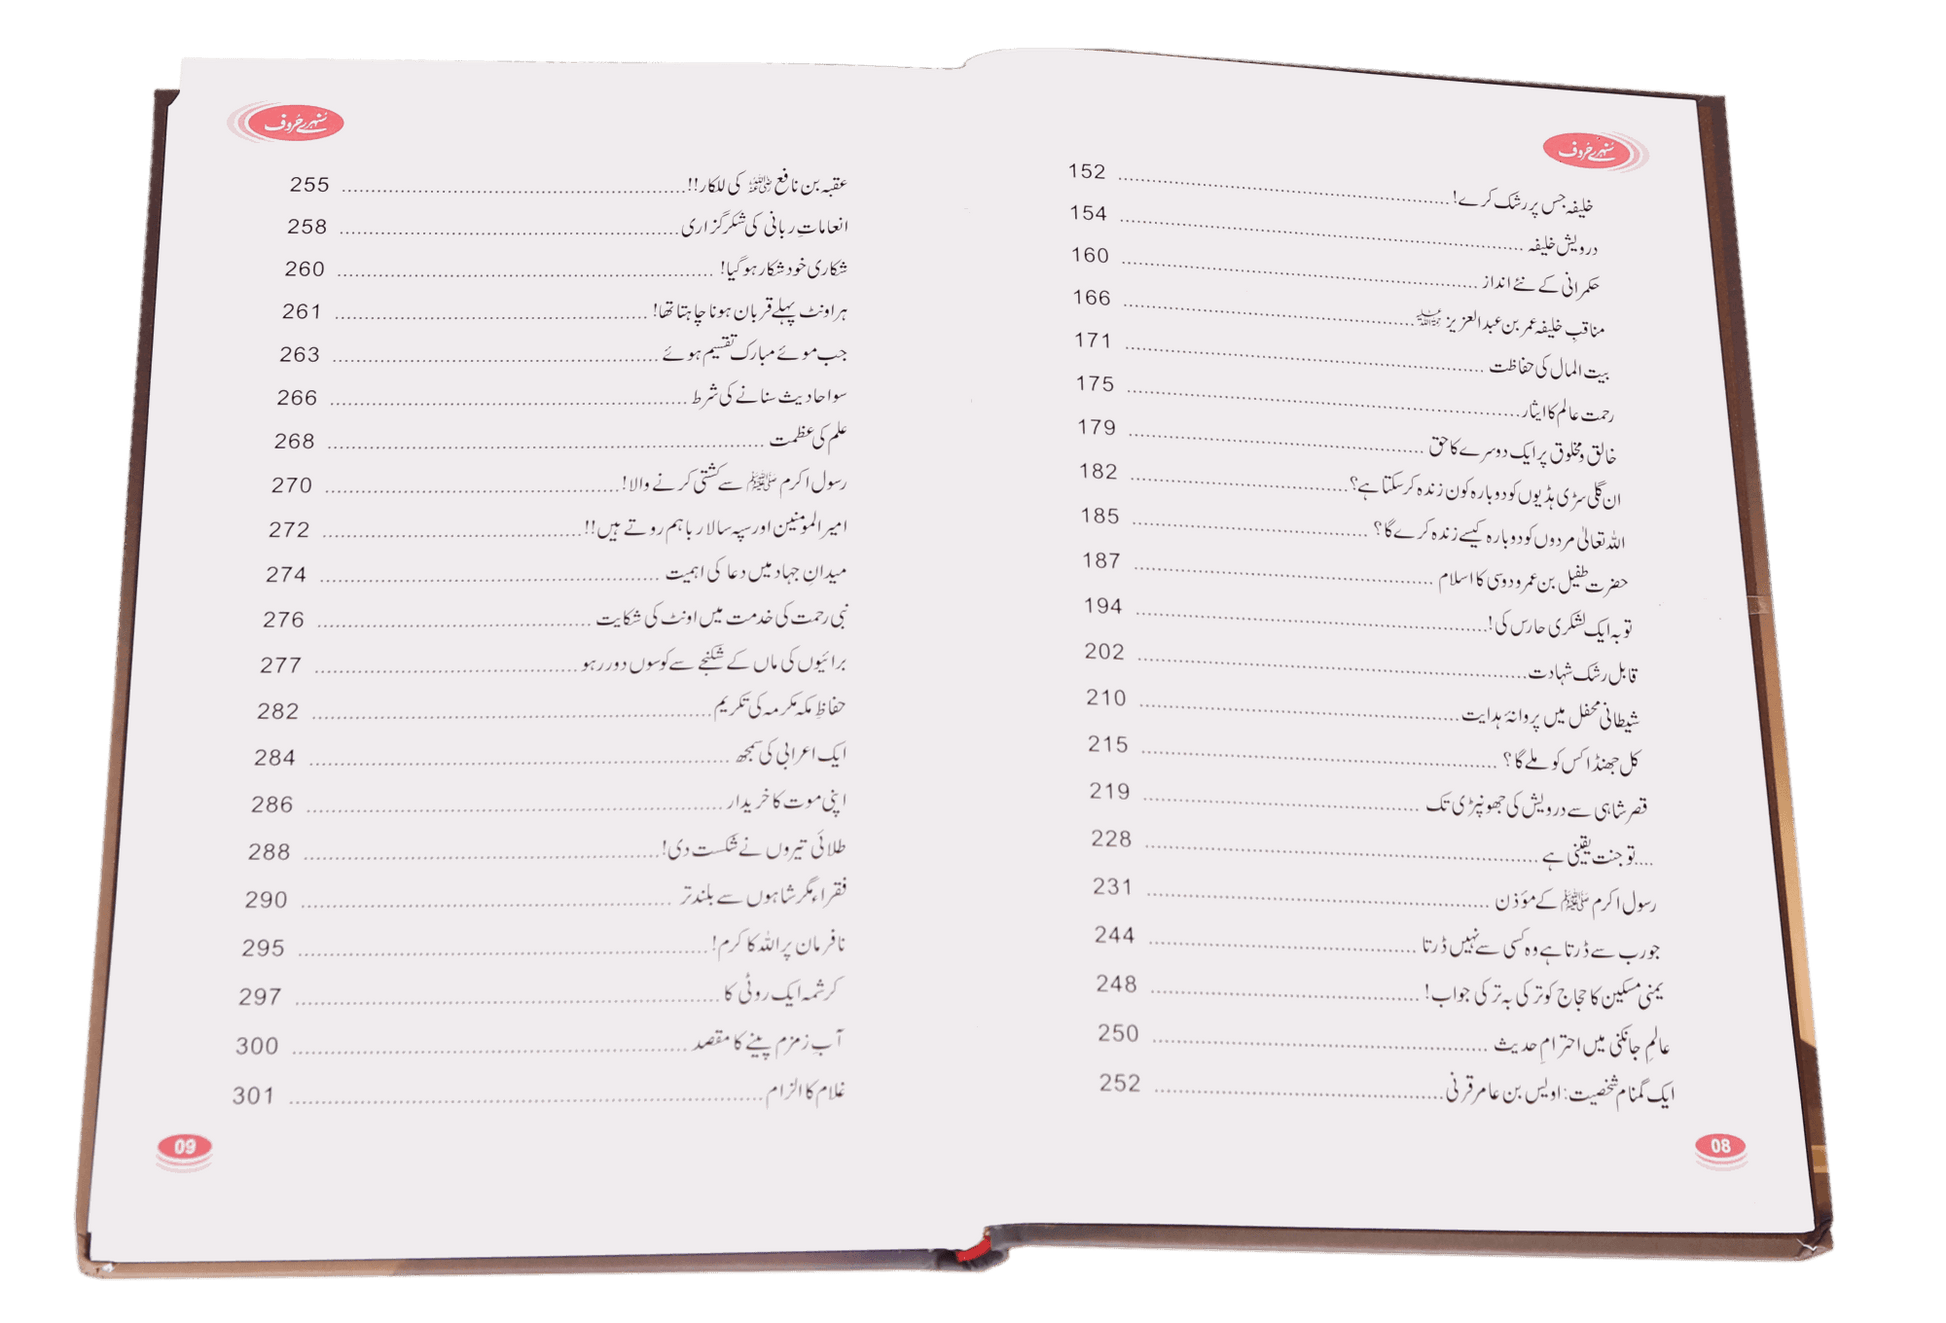 سُنہرے حُروف
خلیفہ جس پر رشک کرے! 152
درویش خلیفہ 154
حکمرانی کے نئے انداز 160
مناقبِ خلیفہ عمر بن عبدالعزیز رحمہ اللہ 166
بیت المال کی حفاظت 171
رحمت عالم کا ایثار 175
خالق و مخلوق پر ایک دوسرے کا حق 179
ان گلی سڑی ہڈیوں کو دوبارہ کون زندہ کرسکتا ہے؟ 182
اللہ تعالیٰ مردوں کو دوبارہ کیسے زندہ کرے گا؟ 185
حضرت طفیل بن عمرو دوسی کا اسلام 187
توبہ ایک لشکری حارس کی! 194
قابل رشک شہادت 202
شیطانی محفل میں پروانۂ ہدایت 210
کل جھنڈا کس کو ملے گا؟ 215
قصر شاہی سے درویش کی جھونپڑی تک 219
....تو جنت یقینی ہے 228
رسول اکرم ﷺ کے مؤذن 231
جو رب سے ڈرتا ہے وہ کسی سے نہیں ڈرتا 244
یمنی مسکین کا حجاج کو ترکی بہ ترکی جواب! 248
عالمِ جانکنی میں احترامِ حدیث 250
ایک گمنام شخصیت: اویس بن عامر قرنی 252
08
سُنہرے حُروف
عقبہ بن نافع رضی اللہ عنہ کی للکار!! 255
انعاماتِ ربانی کی شکر گزاری 258
شکاری خود شکار ہو گیا! 260
ہر اونٹ پہلے قربان ہونا چاہتا تھا! 261
جب موئے مبارک تقسیم ہوئے 263
سو احادیث سنانے کی شرط 266
علم کی عظمت 268
رسول اکرم ﷺ سے کشتی کرنے والا! 270
امیر المومنین اور سپہ سالار باہم روتے ہیں!! 272
میدانِ جہاد میں دعا کی اہمیت 274
نبی رحمت کی خدمت میں اونٹ کی شکایت 276
برائیوں کی ماں کے شکنجے سے کوسوں دور رہو 277
حفاظِ مکہ مکرمہ کی تکریم 282
ایک اعرابی کی سمجھ 284
اپنی موت کا خریدار 286
طلائی تیروں نے شکست دی! 288
فقراء مگر شاہوں سے بلند تر 290
نافرمان پر اللہ کا کرم! 295
کرشمہ ایک روٹی کا 297
آبِ زمزم پینے کا مقصد 300
غلام کا الزام 301
09